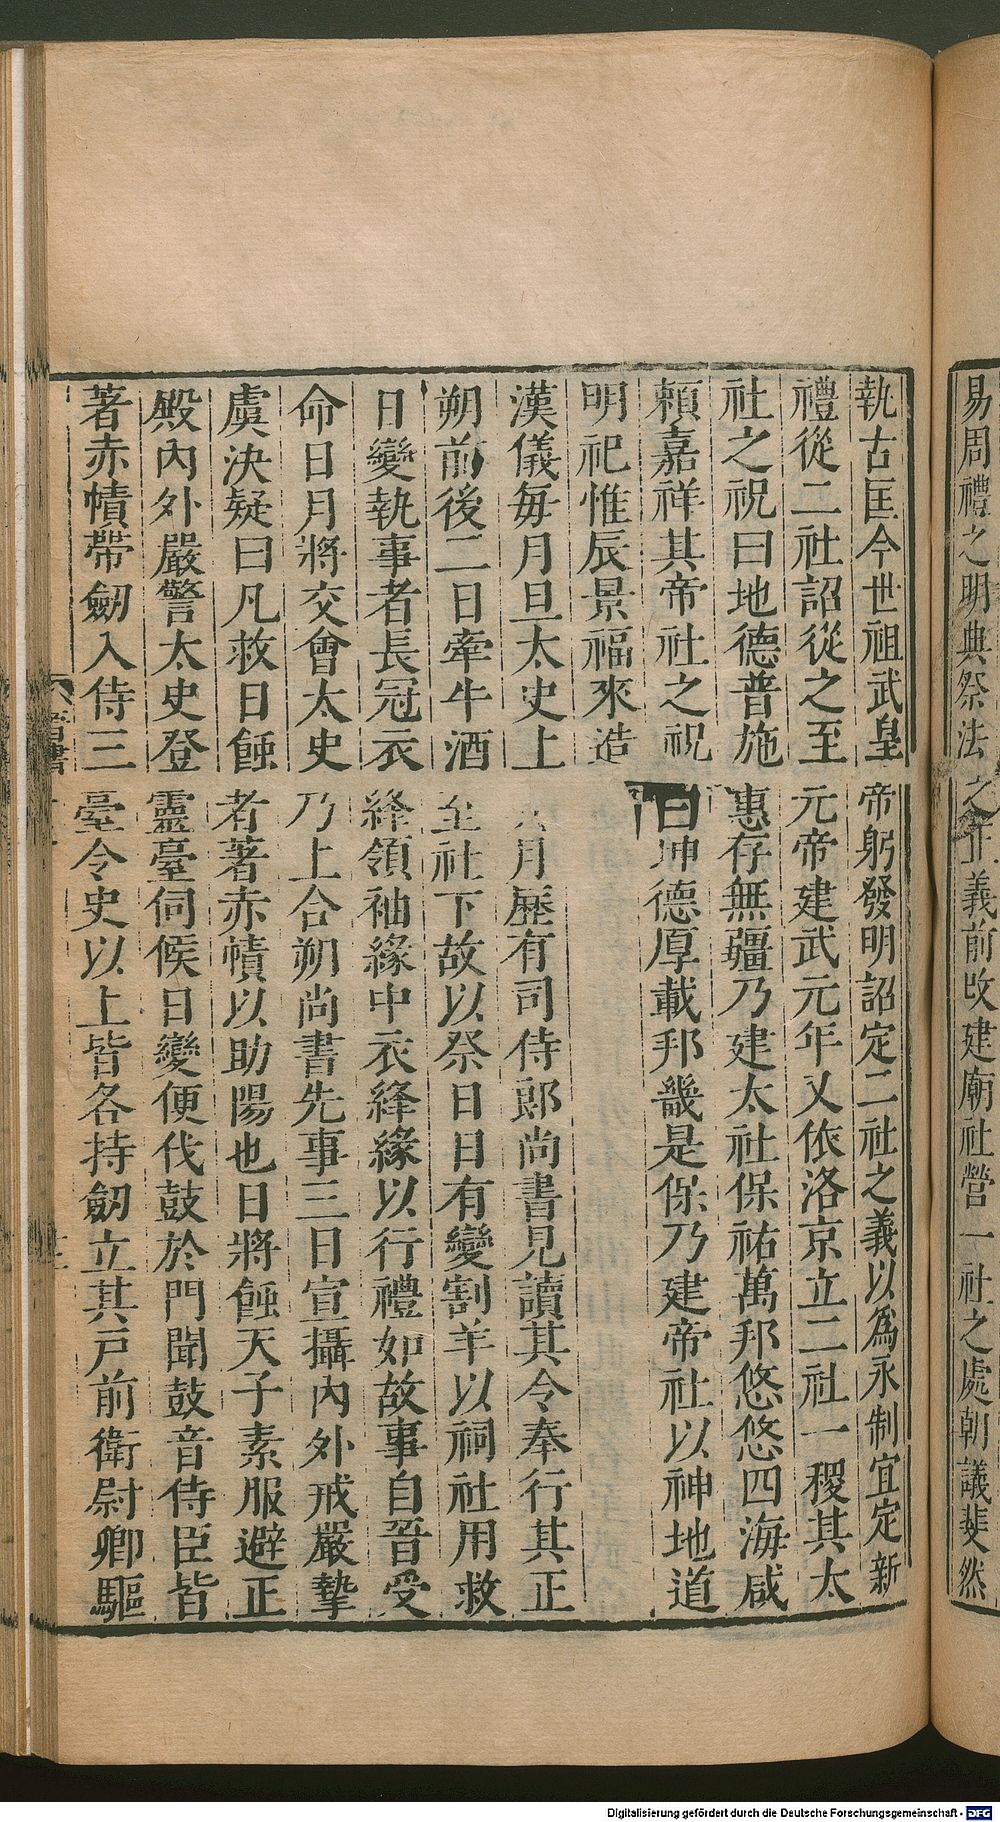 易周禮之明典祭法之正義前改建廟社營一社之處朝議斐然
執古匡今世祖武皇帝躬發明詔定二社之義以爲永制宜定新
禮從二社詔從之至元帝建武元年又依洛京立二社一稷其太
社之祝曰地德普施惠存無疆乃建太社保祐萬邦悠悠四海咸
賴嘉祥其帝社之祝曰坤德厚載邦畿是保乃建帝社以神地道
明祀惟辰景福來造
漢儀每月旦太史上其月曆有司侍郎尚書見讀其令奉行其正
朔前後二日牽牛酒至社下故以祭日日有變割羊以祠社用救
日變執事者長冠衣絳領袖緣中衣絳緣以行禮如故事自晉受
命日月將交會太史乃上合朔尚書先事三日宣攝內外戒嚴摯
虞決疑曰凡救日蝕者著赤幘以助陽也日將蝕天子素服避正
殿內外嚴警太史登靈臺伺候日變便伐鼓於門聞鼓音侍臣皆
著赤幘帶劒入侍三臺令史以上皆各持劒立其戶前衛尉卿驅
晉書
Digitalisierung gefördert durch die Deutsche Forschungsgemeinschaft - DFG